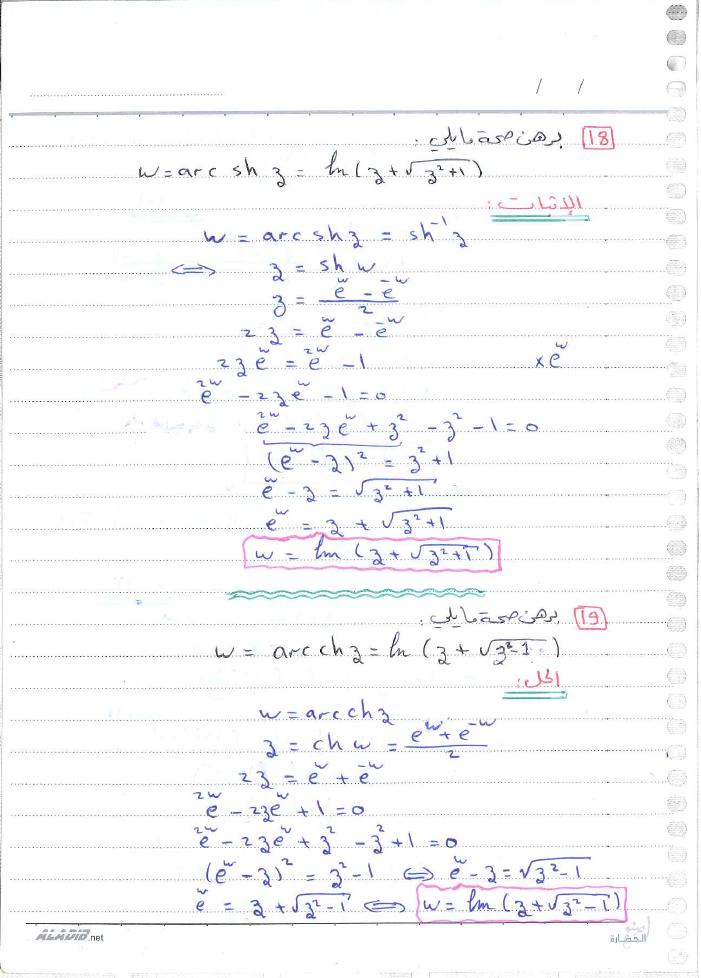 / /
18 برهن صحة مايلي :
w = arc sh z = ln ( z + √(z² + 1) )
الإثبات :
w = arc sh z = sh⁻¹ z
⟺ z = sh w
z = (e^w - e^-w) / 2
2z = e^w - e^-w
2z e^w = e^2w - 1 × e^w
e^2w - 2z e^w - 1 = 0
e^2w - 2z e^w + z² - z² - 1 = 0
(e^w - z)² = z² + 1
e^w - z = √(z² + 1)
e^w = z + √(z² + 1)
w = ln ( z + √(z² + 1) )
19 برهن صحة مايلي :
w = arc ch z = ln ( z + √(z² - 1) )
الحل :
w = arc ch z
z = ch w = (e^w + e^-w) / 2
2z = e^w + e^-w
e^2w - 2z e^w + 1 = 0
e^2w - 2z e^w + z² - z² + 1 = 0
(e^w - z)² = z² - 1 ⟺ e^w - z = √(z² - 1)
e^w = z + √(z² - 1) ⟺ w = ln ( z + √(z² - 1) )
ALADIB.net
الحضارة